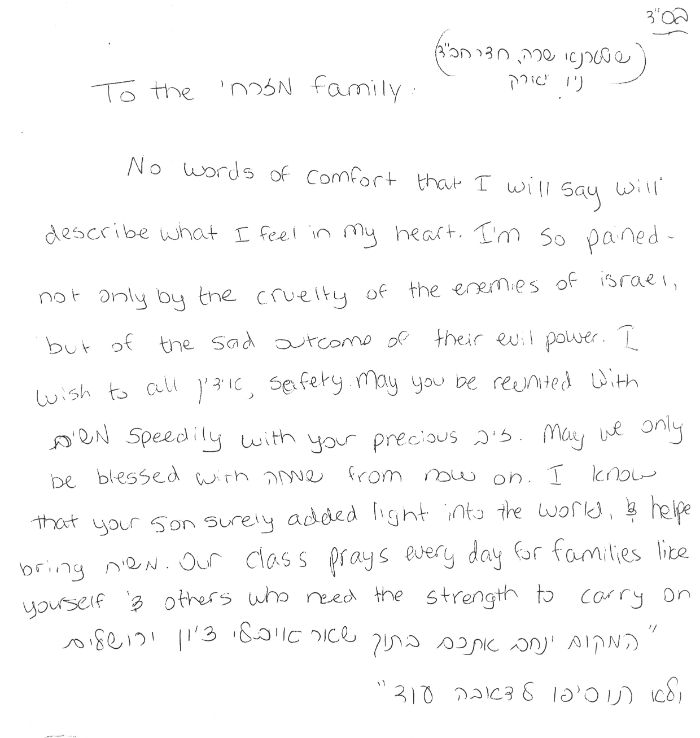 בס"ד
(שטערנא שרה, חדר חב"ד
ניו יארק)
To the מזרחי family.
No words of comfort that I will say will
describe what I feel in my heart. I'm so pained-
not only by the cruelty of the enemies of israel,
but of the sad outcome of their evil power. I
wish to all אידן, safety. May you be reunited with
משיח speedily with your precious זיו. May we only
be blessed with שמחה from now on. I know
that your son surely added light into the world, & helpe
bring משיח. Our class prays every day for families like
yourself & others who need the strength to carry on
"המקום ינחם אתכם בתוך שאר אוויבלי ציון וירושלים
ולא תוסיפו לדאבה עוד"